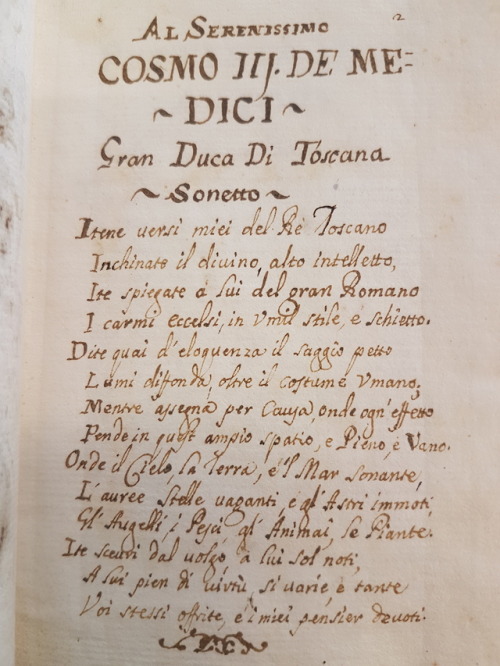 2
AL SERENISSIMO
COSMO IIJ. DE ME=
~ DICI ~
Gran Duca Di Toscana
~ Sonetto ~
Itene versi miei del Rè Toscano
Inchinate il divino, alto intelletto,
Ite spiegate à lui del gran Romano
I carmi eccelsi, in Vmil stile, e schietto.
Dite quai d'eloquenza il saggio petto
Lumi diffonda, oltre il costume Vmano,
Mentre assegna per Causa, onde ogn'effetto
Pende in quest'ampio spatio, e Pieno, e Vano.
Onde il Cielo, la Terra, e'l Mar sonante,
L'auree Stelle vaganti, e gl'Astri immoti,
Gl'Augelli, i Pesci, gl'Animai, le Piante.
Ite scevri dal volgo, à lui sol noti,
A lui pien di virtù, sì varie, e tante
Voi stessi offrite, e i miei pensier devoti.